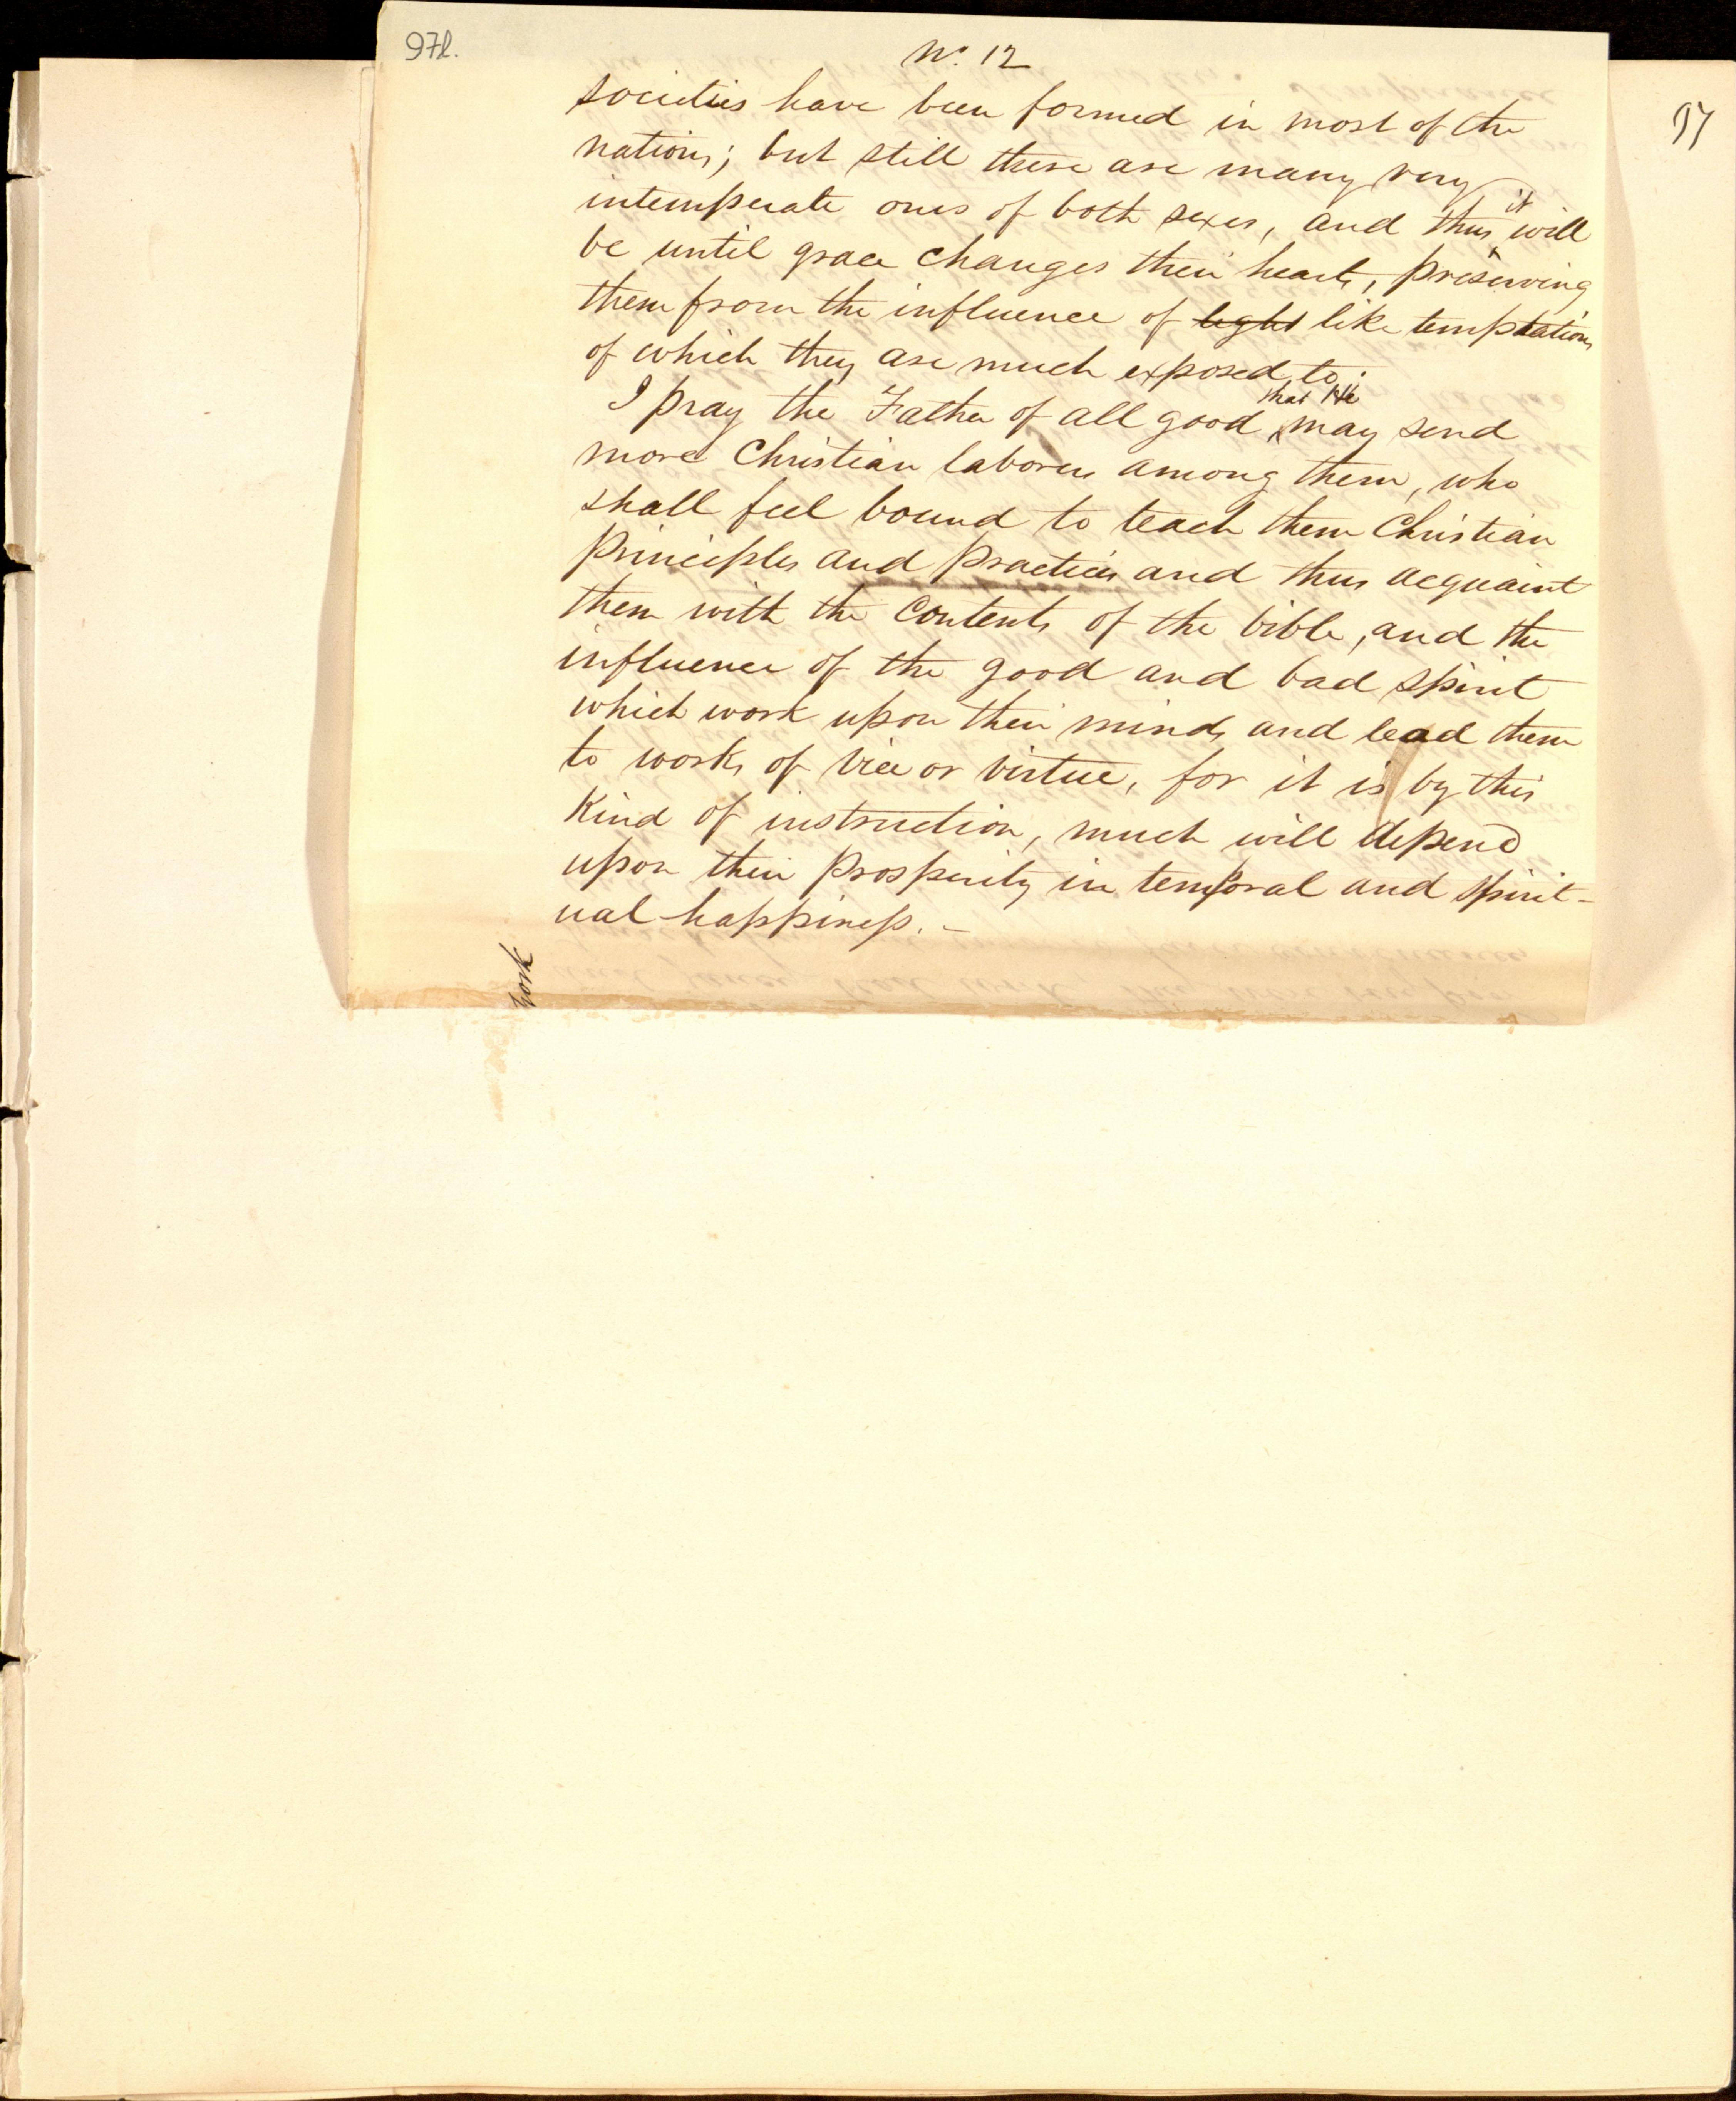 97l.
No. 12
societies have been formed in most of the
nations; but still there are many very
intemperate ones of both sexes, and thus it will
be until grace changes their hearts, preserving
them from the influence of light like temptations
of which they are much exposed to.
I pray the Father of all good, that He may send
more Christian laborers among them, who
shall feel bound to teach them Christian
principles and practices and thus acquaint
them with the contents of the bible, and the
influence of the good and bad spirit
which work upon their minds and lead them
to works of vice or virtue, for it is by this
kind of instruction, much will depend
upon their prosperity in temporal and spirit-
ual happiness. -
York
97